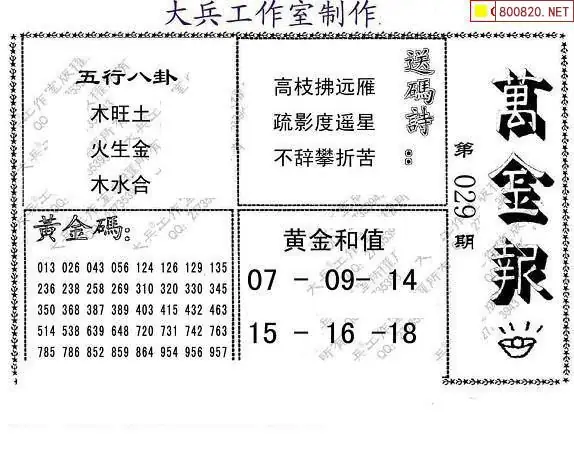 大兵工作室制作
800820.NET
五行八卦
木旺土
火生金
木水合
送碼詩:
高枝拂远雁
疏影度遥星
不辞攀折苦
黃金碼:
013 026 043 056 124 126 129 135
236 238 258 269 310 320 330 345
350 368 387 389 403 415 432 463
514 538 639 648 720 731 742 763
785 786 852 859 864 954 956 957
黄金和值
07 - 09- 14
15 - 16 -18
萬金報
第029期